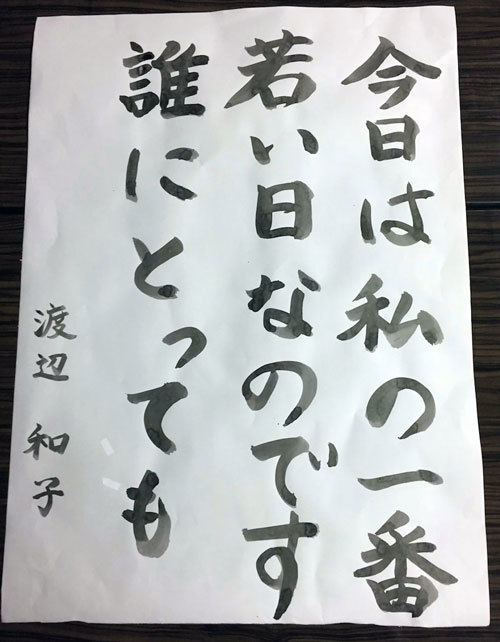 今日は私の一番
若い日なのです
誰にとっても
渡辺 和子